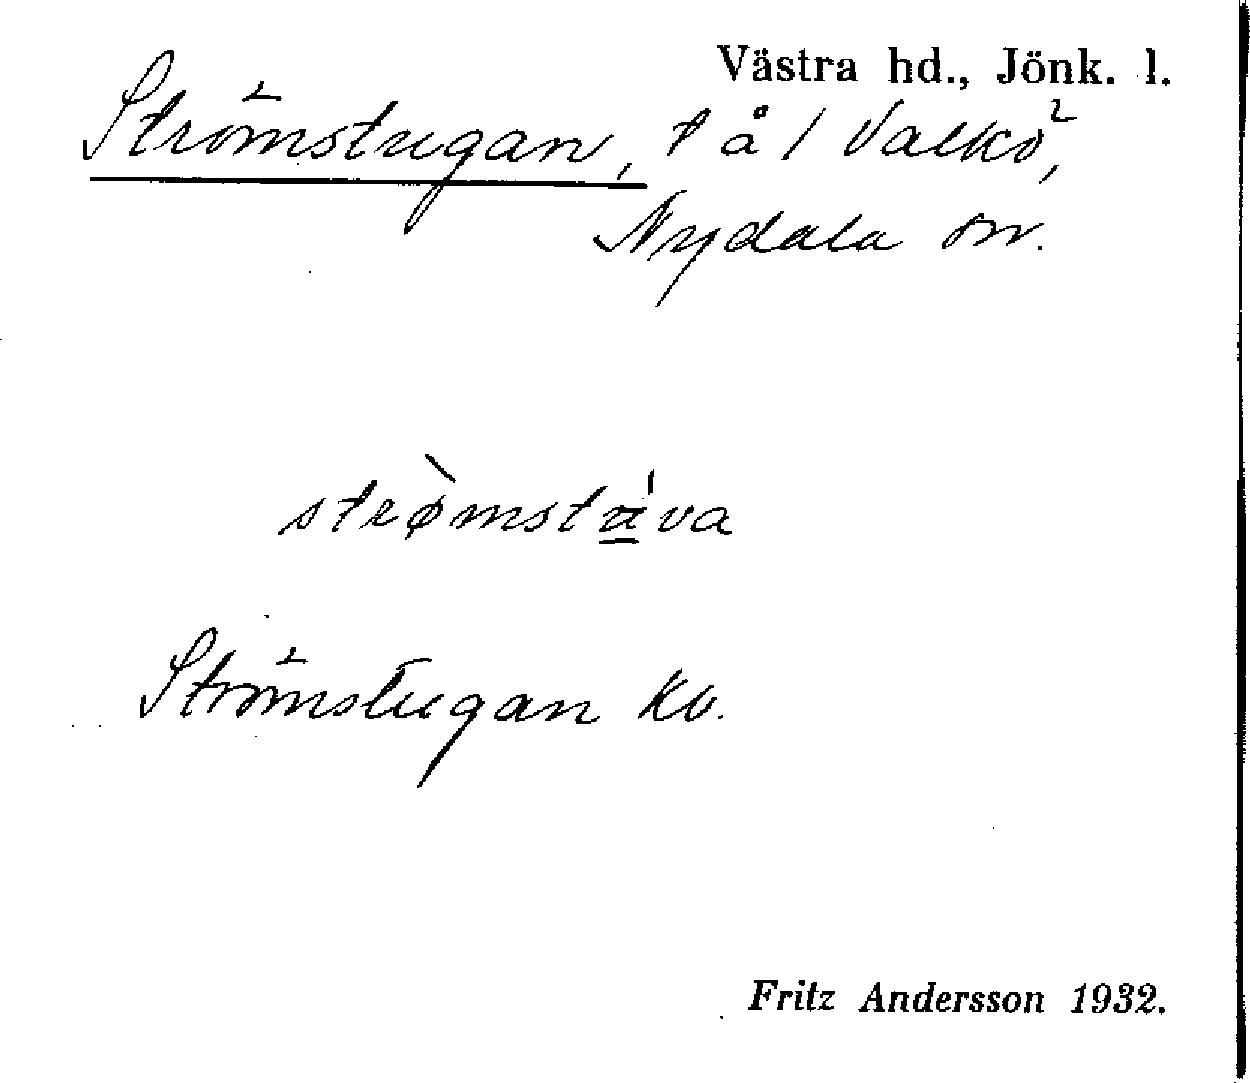 Västra hd., Jönk. l.
Strömstugan, t å / Valkö,
Nydala sn.
strø̀msta̲̍va
Strömstugan kb.
Fritz Andersson 1932.